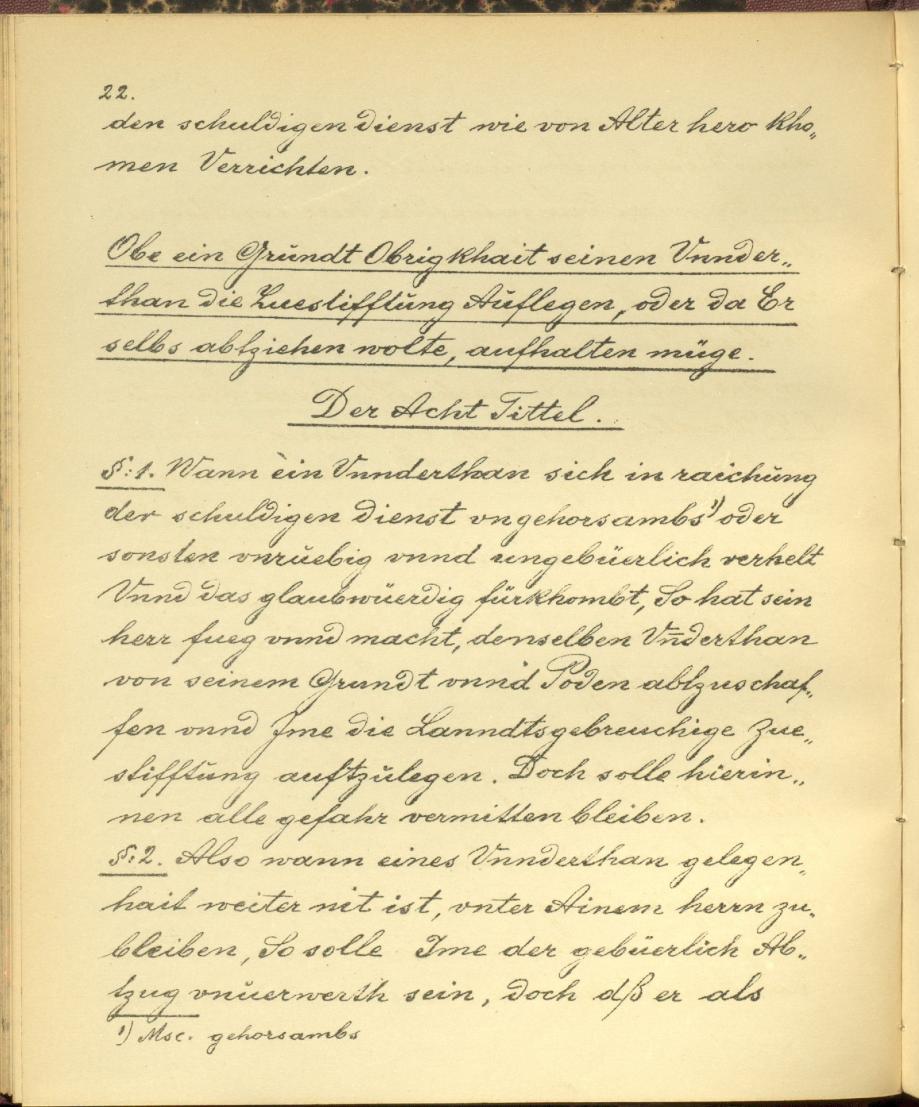 22.
den schuldigen Dienst wie von Alter hero kho„
men Verrichten.
Obe ein Grŭndt Obrigkhait seinen Vnnder„
than die Zuestifftŭng Aŭflegen, oder da Er
selbs abtziehen wolte, aufhalten müge.
Der Acht Tittel.
§:1. Wann ein Vnnderthan sich in raichŭng
der schuldigen Dienst vngehorsambs¹) oder
sonsten vnrŭebig vnnd ungebüerlich verhelt
Vnnd das glaubwüerdig fürkhombt, So hat sein
herr fueg vnnd macht, denselben Vn̄derthan
von seinem Grundt vnnd Poden abtzuschaf„
fen vnnd Ime die Lanndtsgebreuchige Zue„
stifftŭng auftzŭlegen. Doch solle hierin„
nen alle gefahr vermitten bleiben.
§:2. Also wann eines Vnnderthan gelegen„
hait weiter nit ist, vnter Ainem herrn zu„
bleiben, So solle Ime der gebüerlich Ab„
tzug vnŭerwerth sein, doch dß er als
¹) Msc. gehorsambs